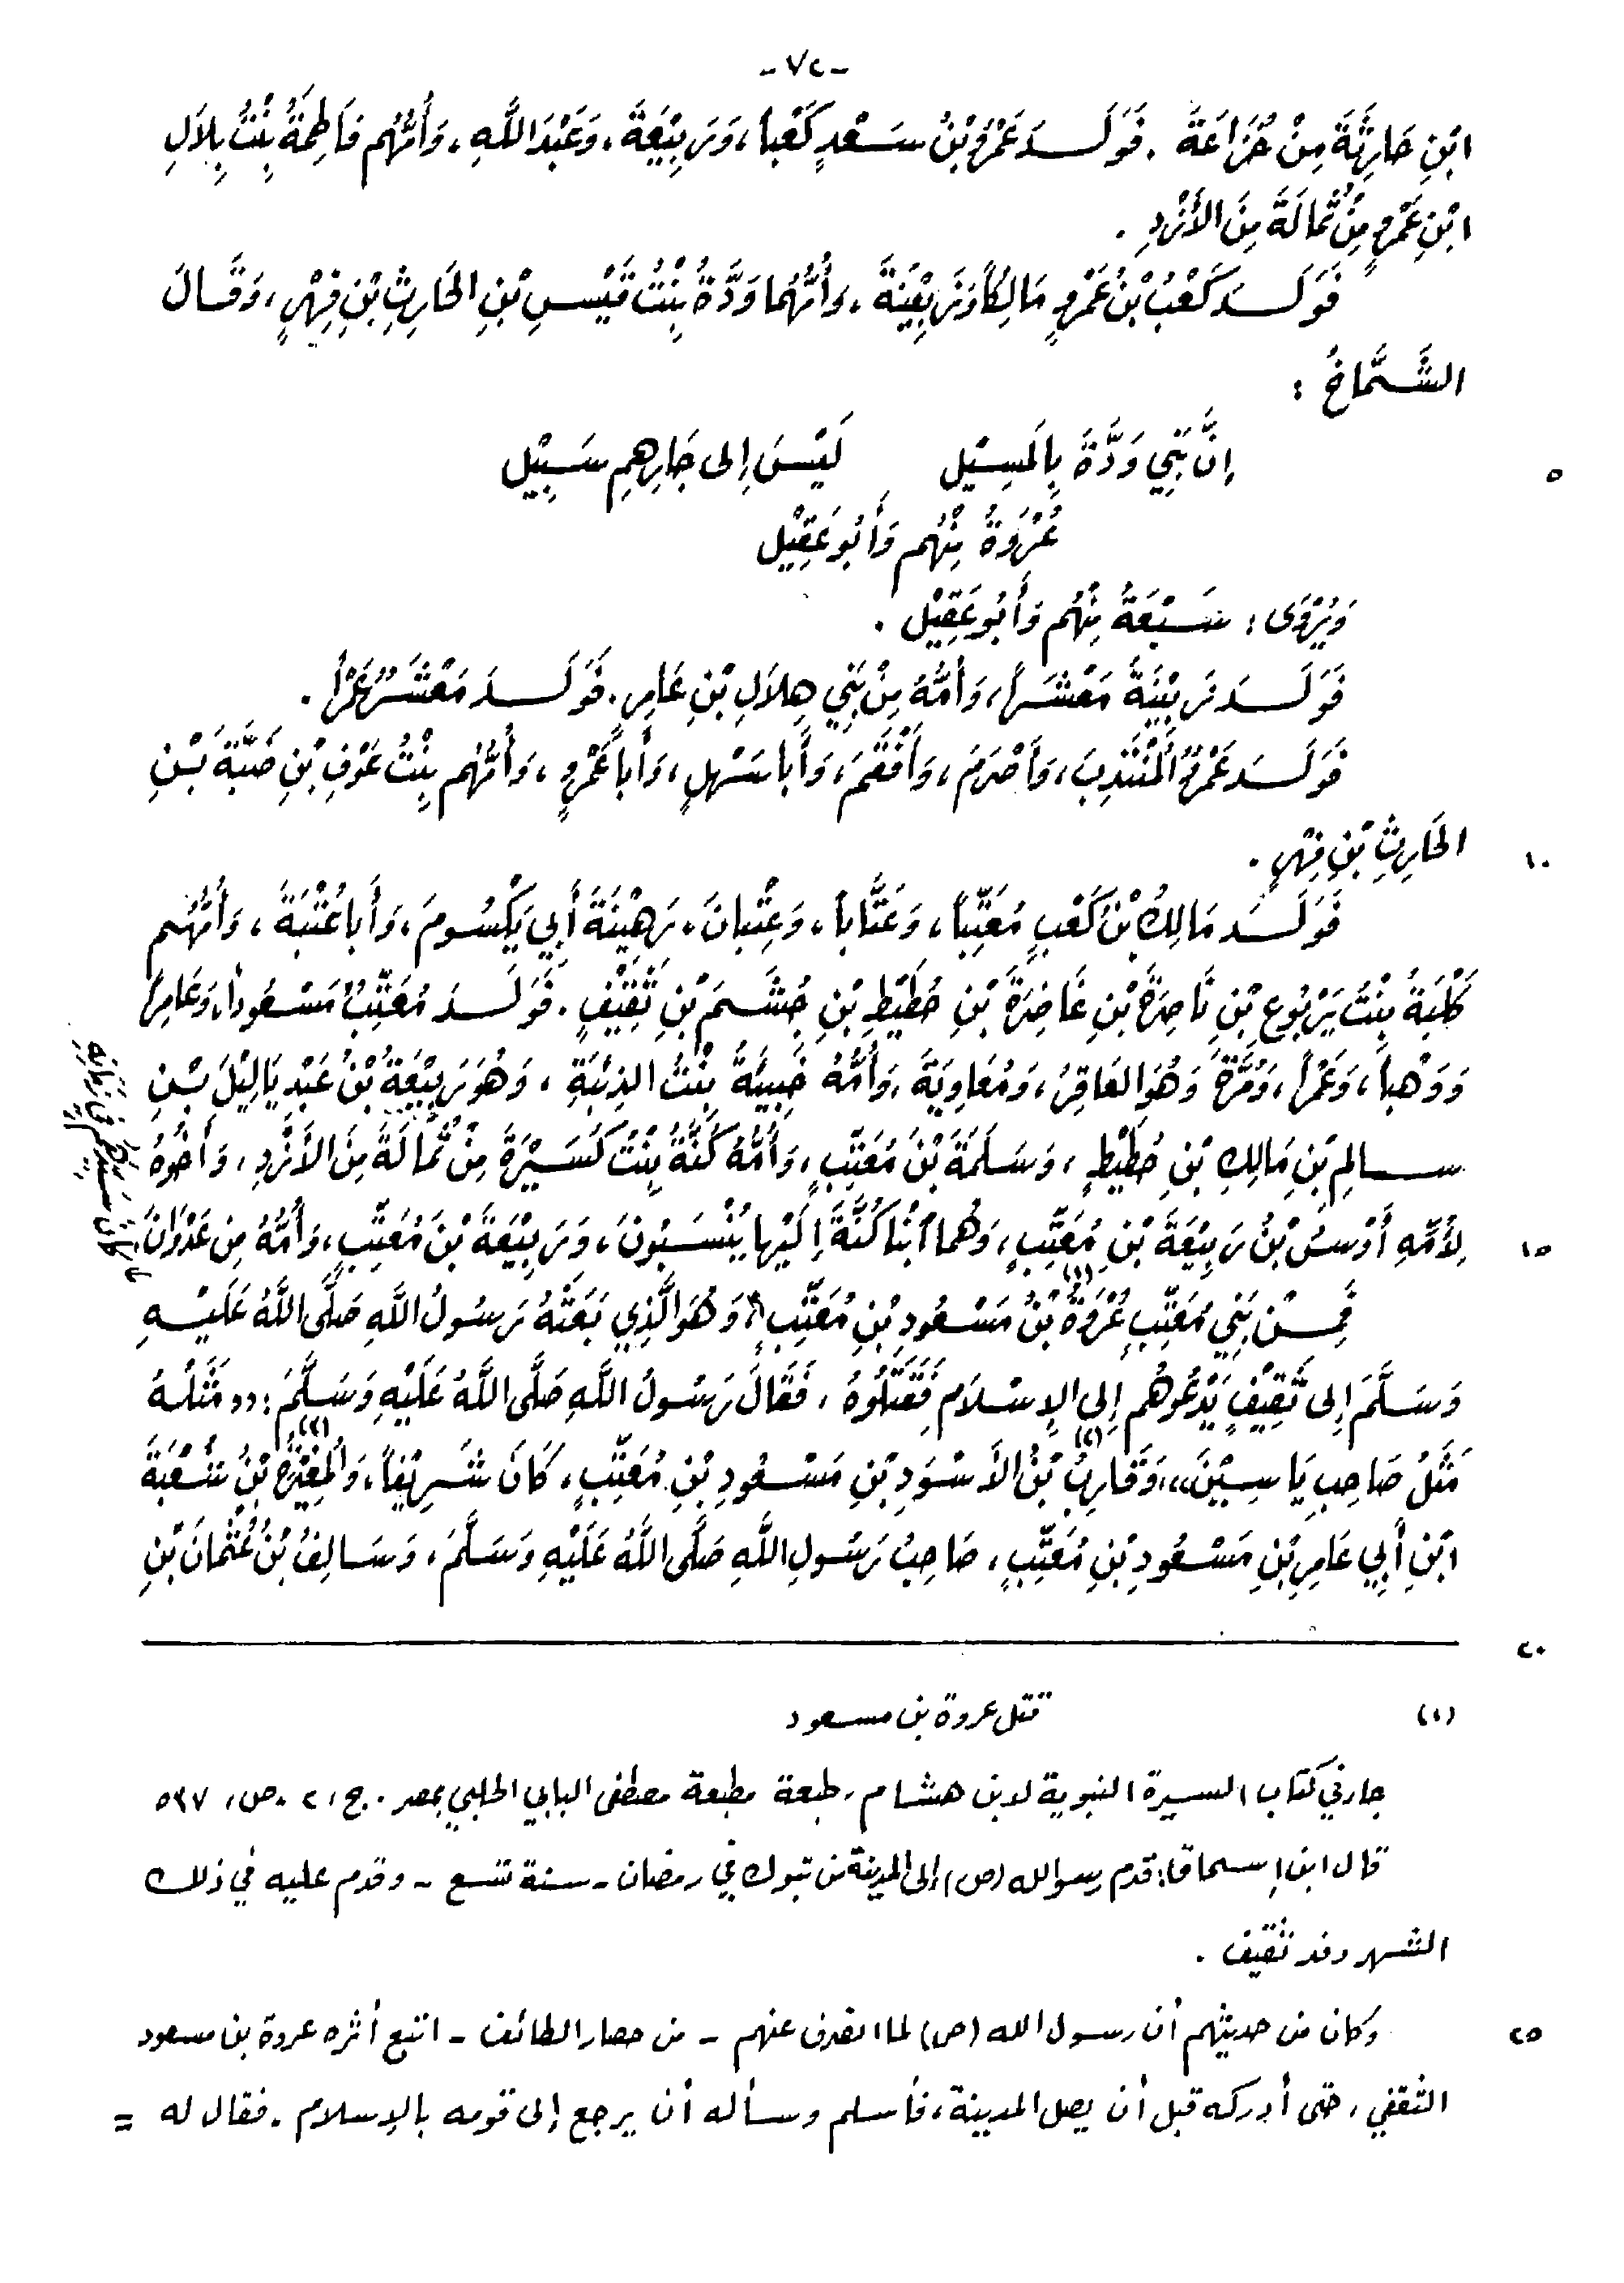 - ٧٢ -
ابْنِ حَارِثَةَ مِنْ خُزَاعَةَ . فَوَلَدَ عَمْرُو بْنُ سَعْدٍ كَعْباً، وَرَبِيْعَةَ، وَعَبْدَ اللَّهِ، وَأُمُّهُم فَاطِمَةُ بِنْتُ بِلاَلِ
ابْنِ عَمْرٍو مِنْ ثُمَالَةَ مِنَ الأَزْدِ .
فَوَلَدَ كَعْبُ بْنُ عَمْرٍو مَالِكاً وَرَبِيْعَةَ، وَأُمُّهُمَا وَدَّةُ بِنْتُ قَيْسِ بْنِ الحَارِثِ بْنِ فِهْرٍ، وَقَالَ
الشَّمَّاخُ :
إِنَّ بَنِي وَدَّةَ بِالمَسِيْل لَيْسَ إِلى جَارِهِمِ سَبِيْل
٥
عُرْوَةُ مِنْهُم وَأَبُو عَقِيْل
وَيُرْوَى : سَبْعَةُ مِنْهُم وَأَبُو عَقِيْل .
فَوَلَدَ رَبِيْعَةُ مَعْشَراً، وَأُمُّهُ مِنْ بَنِي هِلاَلِ بْنِ عَامِرٍ. فَوَلَدَ مَعْشَرٌ عَمْراً .
فَوَلَدَ عَمْرٌو المُنْتَدِبَ، وَأَصْرَمَ، وَأَفْقَمَ، وَأَبا سَهْلٍ، وَأَبا عَمْرٍو، وَأُمُّهُم بِنْتُ عَوْفِ بْنِ ضَبَّةَ بْنِ
الحَارِثِ بْنِ فِهْرٍ .
١٠
فَوَلَدَ مَالِكُ بْنُ كَعْبٍ مُعَتِّباً، وَعَتَّاباً، وَعِتْبانَ، رَهِيْنَةَ أَبِي يَكْسُومَ، وَأَبا عُتْبَةَ، وَأُمُّهُم
كَلْبَةُ بِنْتُ يَرْبُوعِ بْنِ نَاصِرَةَ بْنِ غَاضِرَةَ بْنِ حُطَيْطِ بْنِ جُشَمَ بْنِ ثَقِيْفٍ . فَوَلَدَ مُعَتِّبُ مَسْعُوداً، وَعَامِراً
وَوَهْباً، وَعَمْراً، وَمُرَّةَ وَهُوَ العَاقِرُ، وَمُعَاوِيَةَ، وَأُمُّهُ خَبِيئَةُ بِنْتُ الذِئْبَةِ ، وَهُوَ رَبِيْعَةُ بْنُ عَبْدِ يَالِيْلَ بْنِ
سالِمِ بْنِ مَالِكِ بْنِ حُطَيْطٍ، وَسَلَمَةَ بْنَ مُعَتِّبٍ، وَأُمُّهُ كُنَّةُ بِنْتُ كُسَيْرَةَ مِنْ ثُمَالَةَ مِنَ الأَزْدِ، وَأَخُوهُ
لِأُمِّهِ أَوْسُ بْنُ رَبِيْعَةَ بْنِ مُعَتِّبٍ، وَهُمَا ابْنَا كُنَّةَ إِلَيْهَا يُنْسَبُونَ، وَرَبِيْعَةَ بْنَ مُعَتِّبٍ، وَأُمُّهُ مِن عَدْوَانَ
١٥
كَانَ سَيِّدَهُم فِي زَمَانِهِ
فَمِنْ بَنِي مُعَتِّبٍ عُرْوَةُ (١) بْنُ مَسْعُودِ بْنِ مُعَتِّبٍ، وَهُوَ الَّذِي بَعَثَهُ رَسُولُ اللَّهِ صَلَّى اللَّهُ عَلَيْهِ
وَسَلَّمَ إِلى ثَقِيْفٍ يَدْعُوهُم إِلى الإِسْلاَمِ فَقَتَلُوهُ، فَقَالَ رَسُولُ اللَّهِ صَلَّى اللَّهُ عَلَيْهِ وَسَلَّمَ : «مَثَلُهُ
مَثَلُ صَاحِبِ يَاسِيْنَ»، وَقَارِبُ (٢) بْنُ الأَسْوَدِ بْنِ مَسْعُودِ بْنِ مُعَتِّبٍ، كَانَ شَرِيْفاً، وَالمُغِيْرَةُ (٢) بْنُ شُعْبَةَ
ابْنِ أَبِي عَامِرِ بْنِ مَسْعُودِ بْنِ مُعَتِّبٍ، صَاحِبُ رَسُولِ اللَّهِ صَلَّى اللَّهُ عَلَيْهِ وَسَلَّمَ، وَسَالِفُ بْنُ عُثْمانَ بْنِ
٢٠
(١) قتل عروة بن مسعود
جاء في كتاب السيرة النبوية لابن هشام، طبعة مطبعة مصطفى البابي الحلبي بمصر . ج، ٢ . ص، ٥٣٧
قال ابن إسحاق: قدم رسول الله (ص) إلى المدينة من تبوك في رمضان - سنة تسع - وقدم عليه في ذلك
الشهر وفد ثقيف .
وكان من حديثهم أن رسول الله (ص) لما انصرف عنهم - من حصار الطائف - اتبع أثره عروة بن مسعود
٢٥
الثقفي، حتى أدركه قبل أن يصل المدينة، فأسلم وسأله أن يرجع إلى قومه بالإسلام . فقال له =